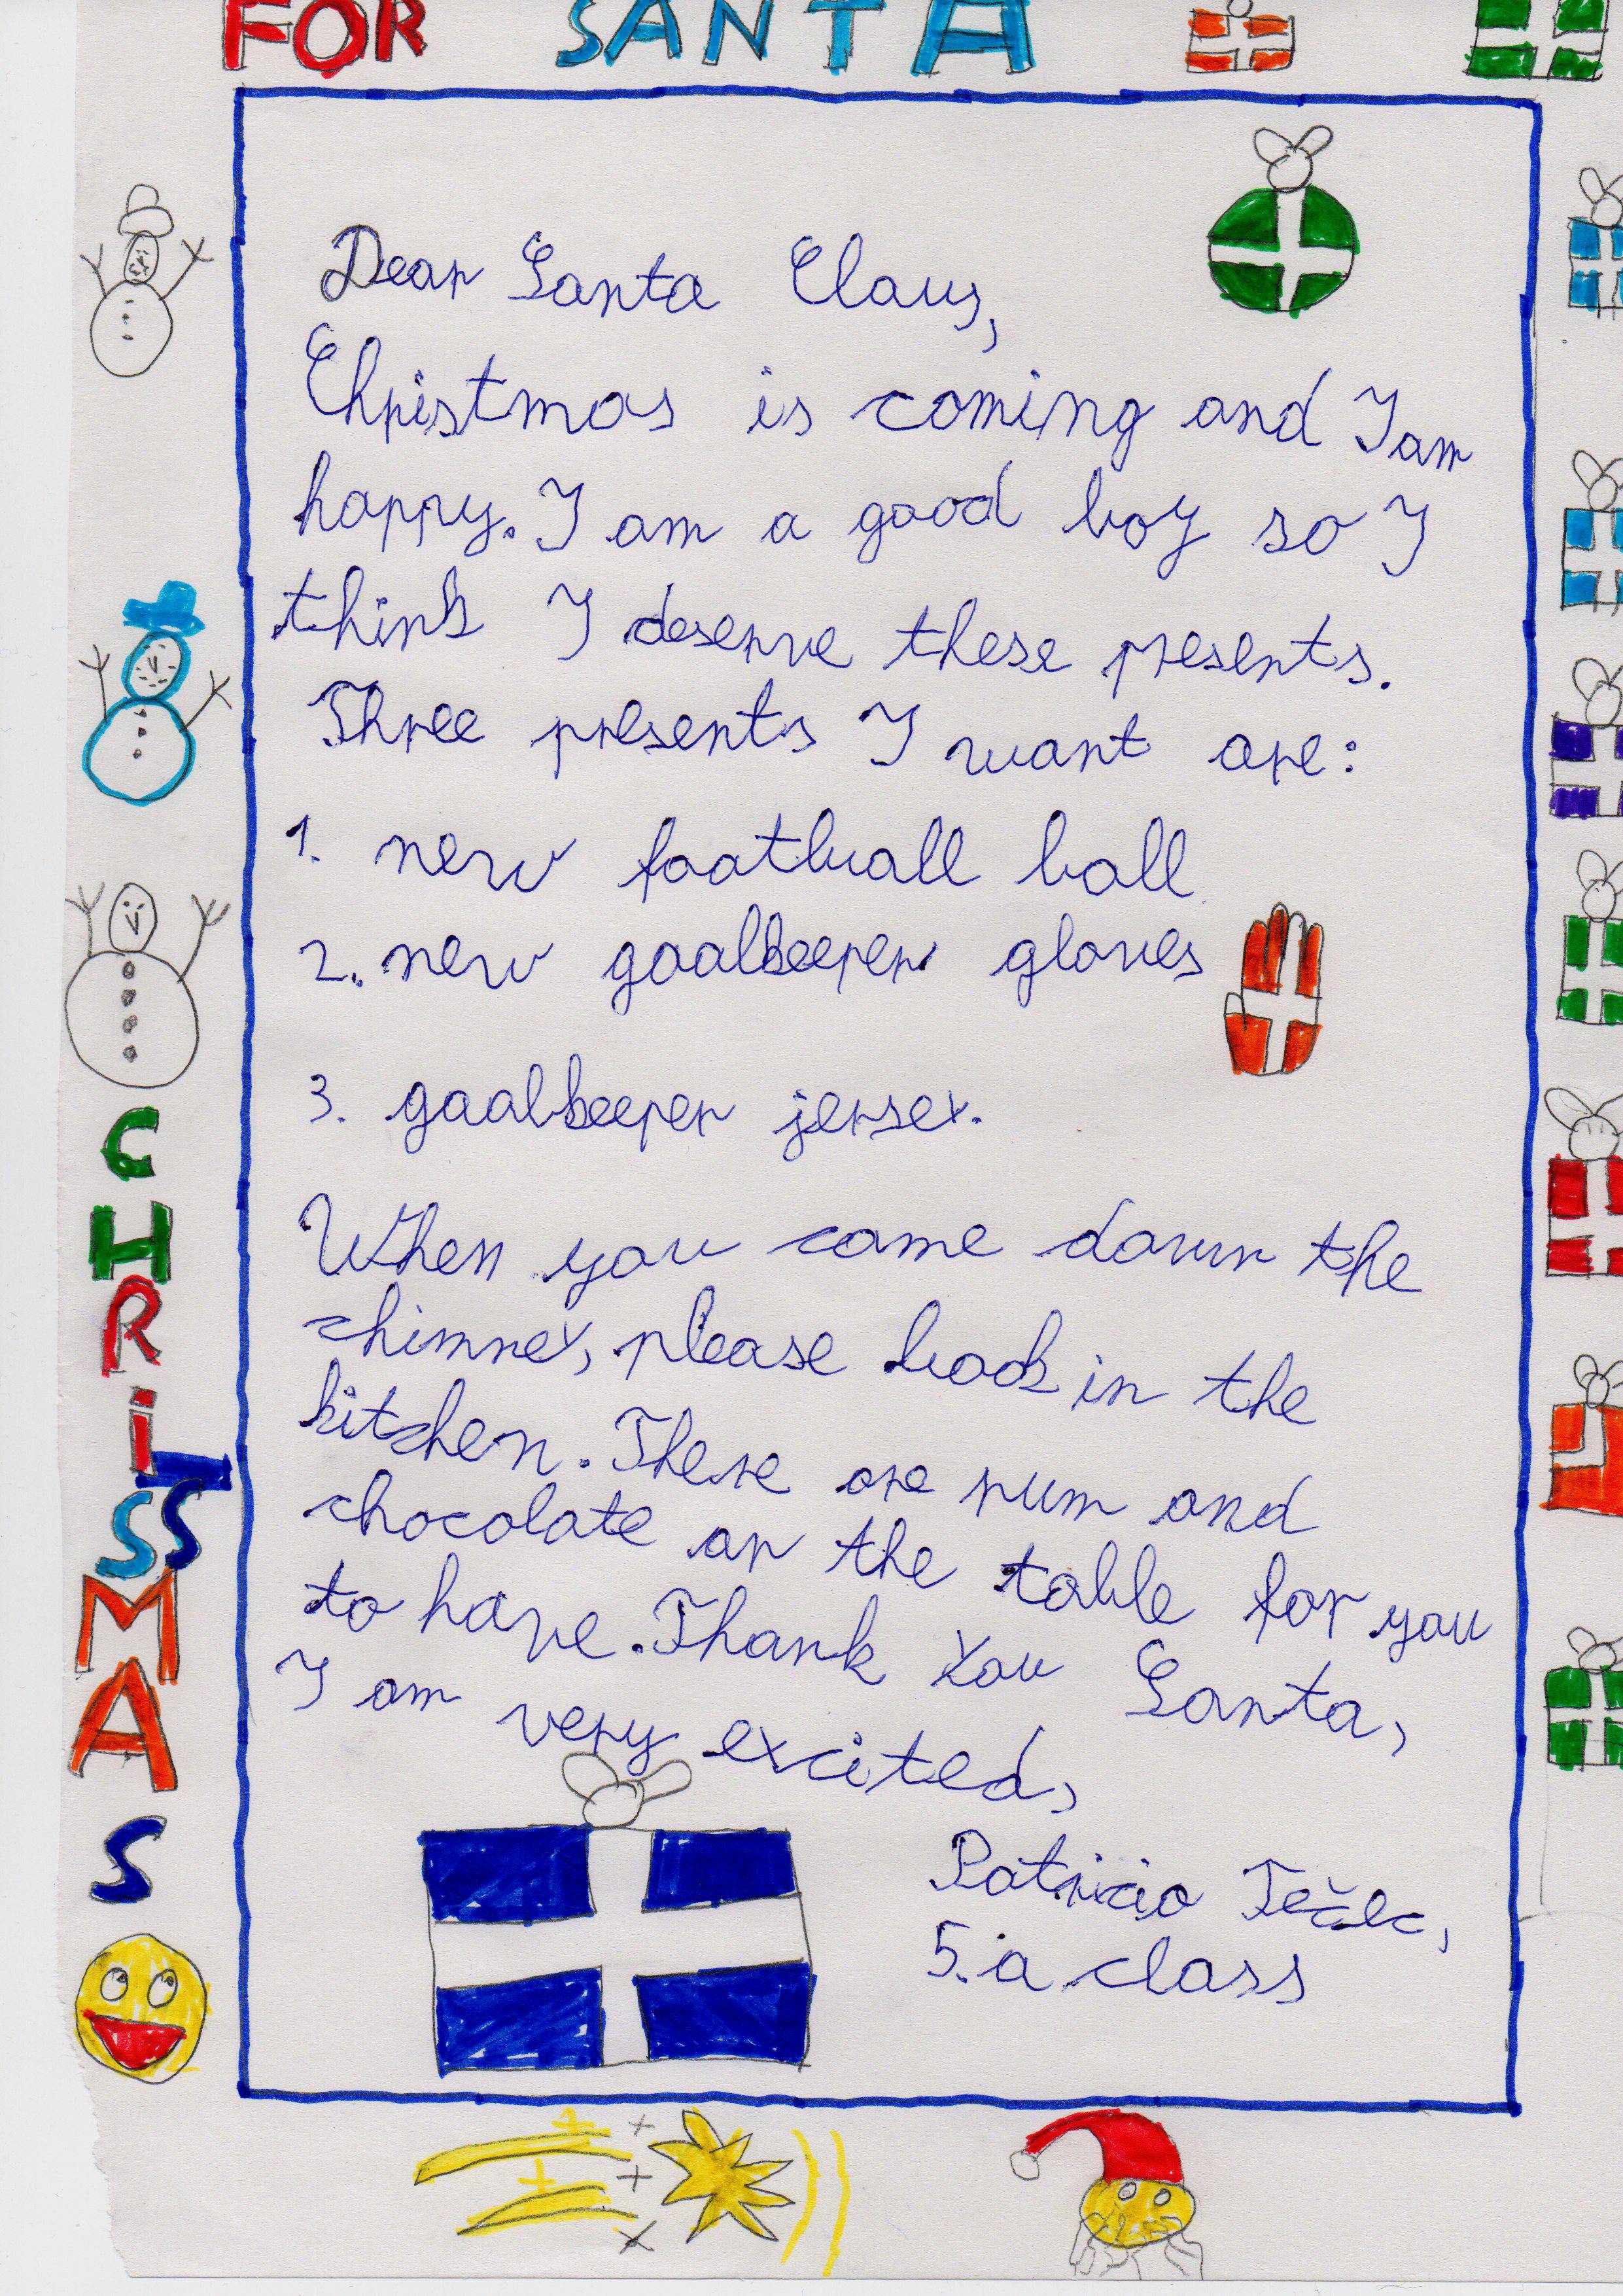 FOR SANTA
Dear Santa Claus,
Christmas is coming and I am
happy. I am a good boy so I
think I deserve these presents.
Three presents I want are:
1. new football ball
2. new goalkeeper gloves
3. goalkeeper jersey.
When you come down the
chimney, please look in the
kitchen. There are rum and
chocolate on the table for you
to have. Thank You Santa,
I am very excited,
Patricio Tečec,
5. a class
CHRISTMAS